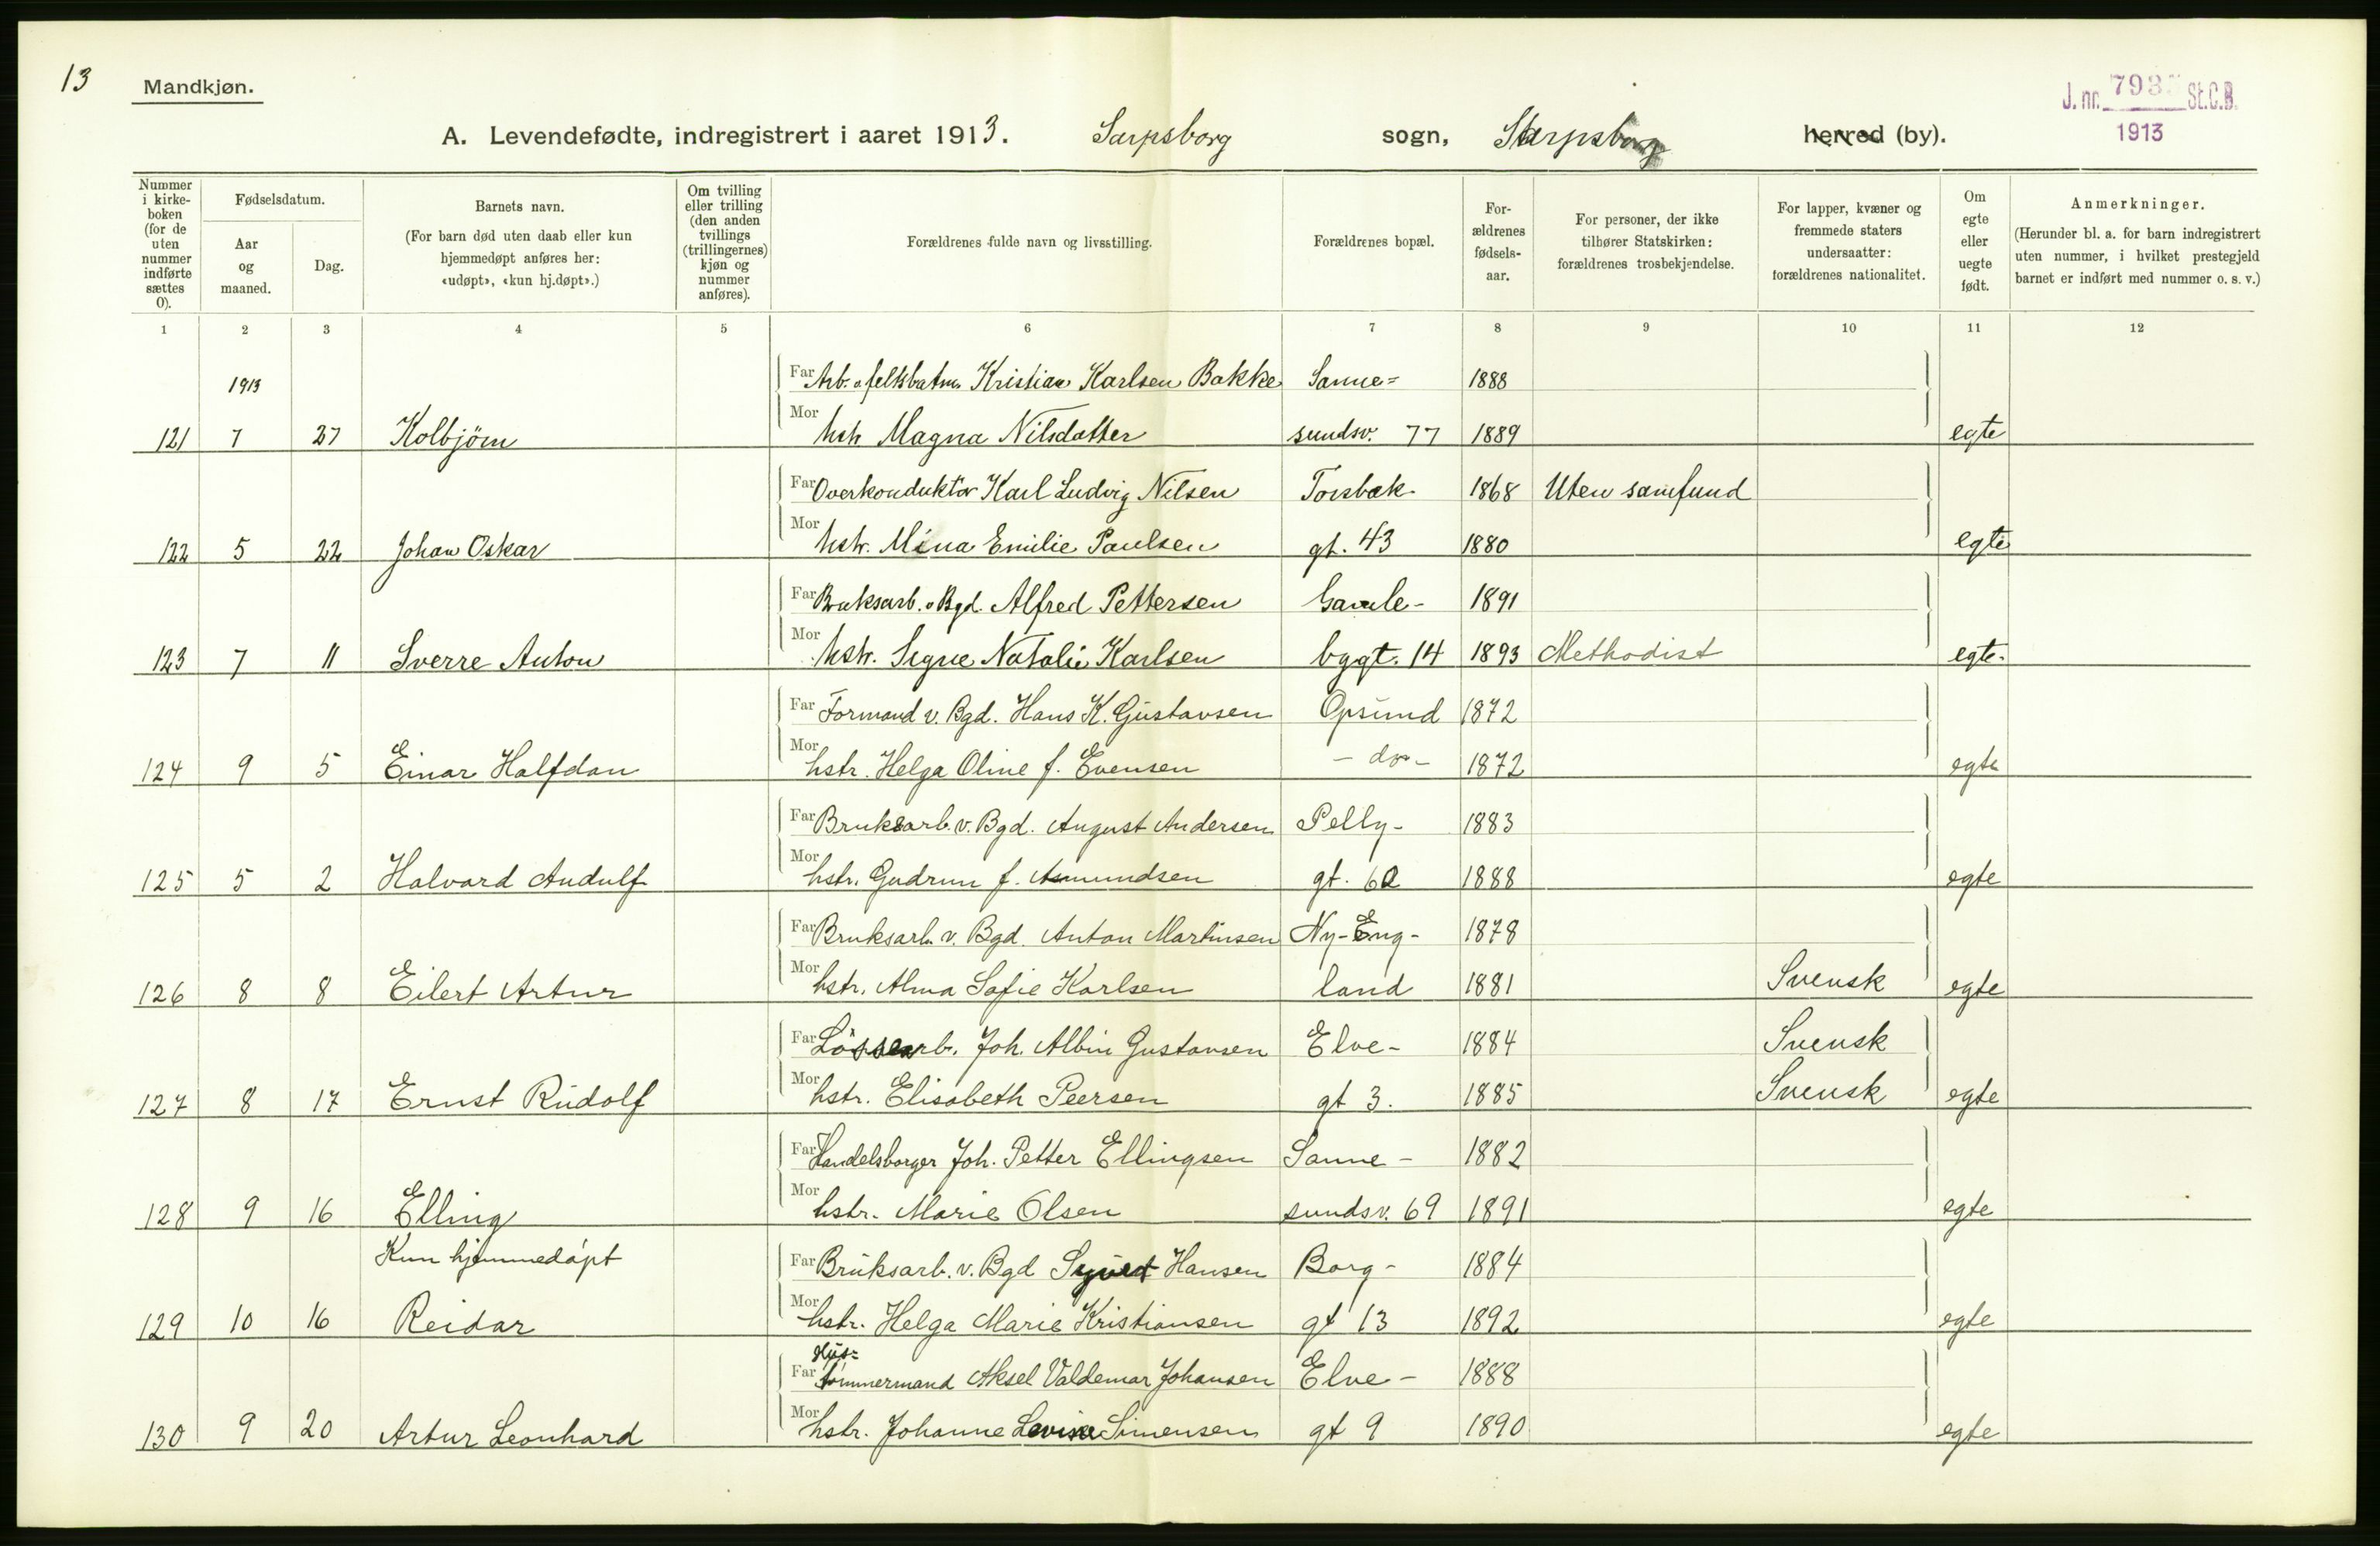 13
Mandkjøn.
J. nr. 793 St.C.B.
1913
A. Levendefødte, indregistrert i aaret 1913. Sarpsborg sogn, Sarpsborg herred (by).
Nummer i kirke-boken (for de uten nummer indførte sættes 0).
Fødselsdatum.
Aar og maaned.
Dag.
Barnets navn.
(For barn død uten daab eller kun hjemmedøpt anføres her: «udøpt», «kun hj.døpt».)
Om tvilling eller trilling (den anden tvillings (trillingernes) kjøn og nummer anføres).
Forældrenes fulde navn og livsstilling.
Forældrenes bopæl.
For-ældrenes fødsels-aar.
For personer, der ikke tilhører Statskirken: forældrenes trosbekjendelse.
For lapper, kvæner og fremmede staters undersaatter: forældrenes nationalitet.
Om egte eller uegte født.
Anmerkninger.
(Herunder bl. a. for barn indregistrert uten nummer, i hvilket prestegjeld barnet er indført med nummer o. s. v.)
1 2 3 4 5 6 7 8 9 10 11 12
1913 Far Arb. Kristian Karlsen Bakke Sanne= 1888
121 7 27 Kolbjörn Mor hstr Magna Nilsdatter sundsv. 77 1889 egte
Far Overkonduktör Karl Ludvig Nilsen Torsbæk 1868 Uten samfund
122 5 22 Johan Oskar Mor hstr. Mina Emilie Paulsen gt. 43 1880 egte
Far Bruksarb. v Bgd. Alfred Pettersen Gamle- 1891
123 7 11 Sverre Anton Mor hstr. Signe Natalie Karlsen bygt. 14 1893 Methodist egte
Far Formand v. Bgd. Hans K. Gustavsen Opsund 1872
124 9 5 Einar Halfdan Mor hstr. Helga Oline f. Evensen - do - 1872 egte
Far Bruksarb. v. Bgd. August Andersen Pelly- 1883
125 5 2 Halvard Audulf Mor hstr. Gudrun f. Asmundsen gt. 60 1888 egte
Far Bruksarb. v. Bgd. Anton Martinsen Ny-Eng- 1878
126 8 8 Eilert Artur Mor hstr. Alma Sofie Karlsen land 1881 Svensk egte
Far Lössearb. Joh. Albin Gustavsen Elve- 1884 Svensk
127 8 17 Ernst Rudolf Mor hstr. Elisabeth Peersen gt 3. 1885 Svensk egte
Far Handelsborger Joh. Petter Ellingsen Sanne- 1882
128 9 16 Elling Mor hstr. Marie Olsen sundsv. 69 1891 egte
Kun hjemmedöpt Far Bruksarb. v. Bgd Syvert Hansen Borg- 1884
129 10 16 Reidar Mor hstr. Helga Marie Kristiansen gt 13 1892 egte
Hus=
Far tömmermand Aksel Valdemar Johansen Elve- 1888
130 9 20 Artur Leonhard Mor hstr. Johanne Lovise Simensen gt 9 1890 egte